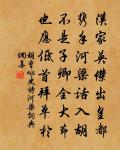 漢家英傑出皇都
攜手河梁話入胡
不是子卿全大節
也應低首拜單于
胡曾咏史詩河梁詞典
網集